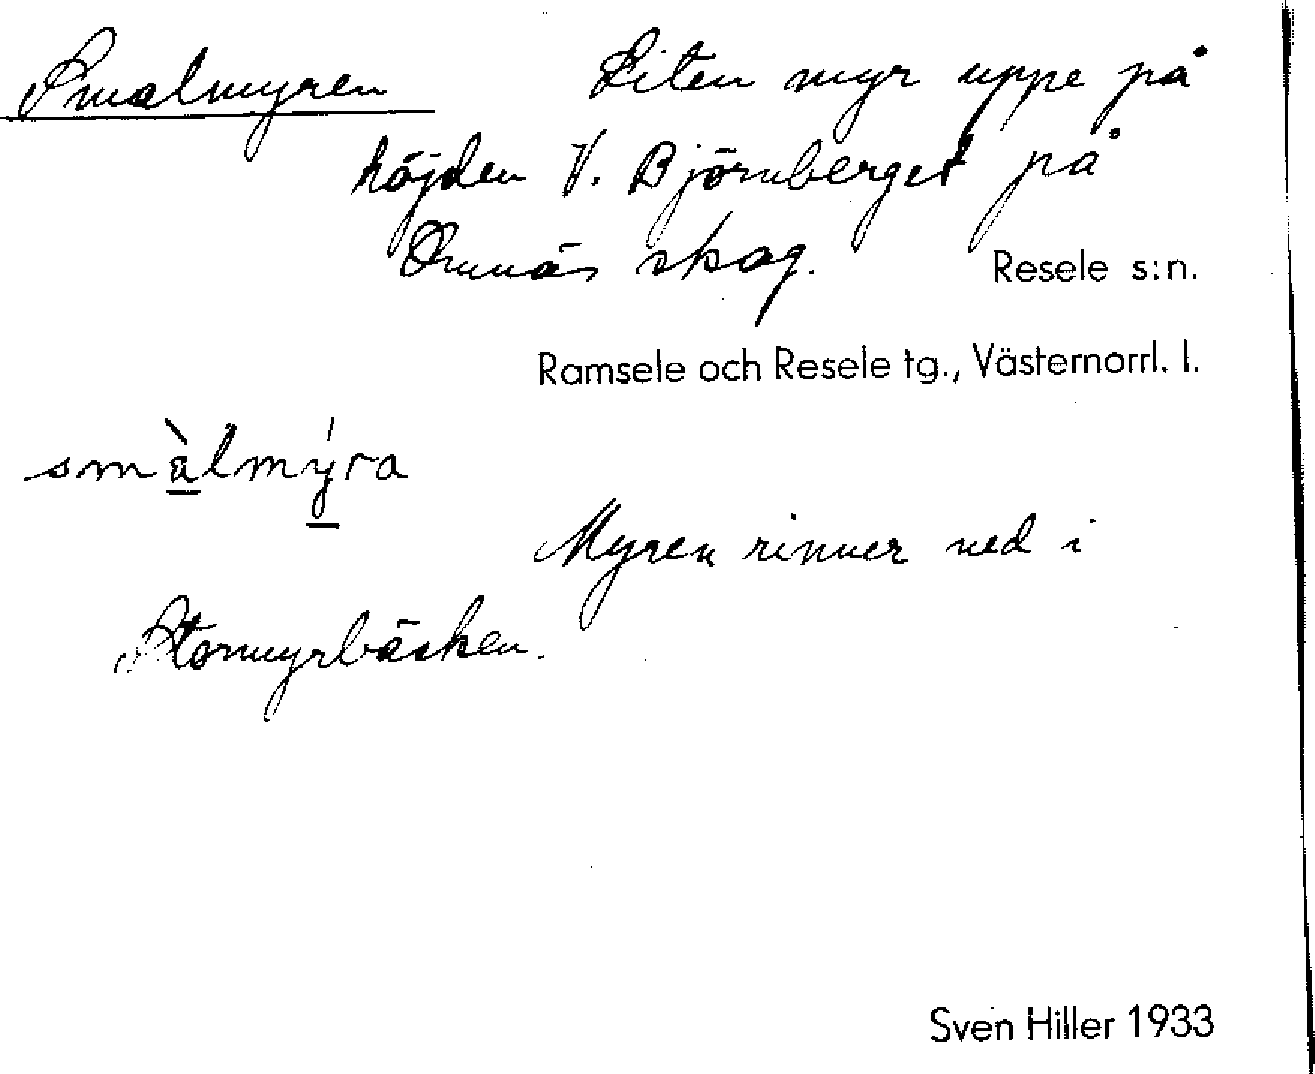 Smalmyren Liten myr uppe på
höjden V. Björnberget på
Omnäs skog. Resele s:n.
Ramsele och Resele tg., Västernorrl. l.
smàlmýra
Myren rinner ned i
Stormyrbäcken.
Sven Hiller 1933